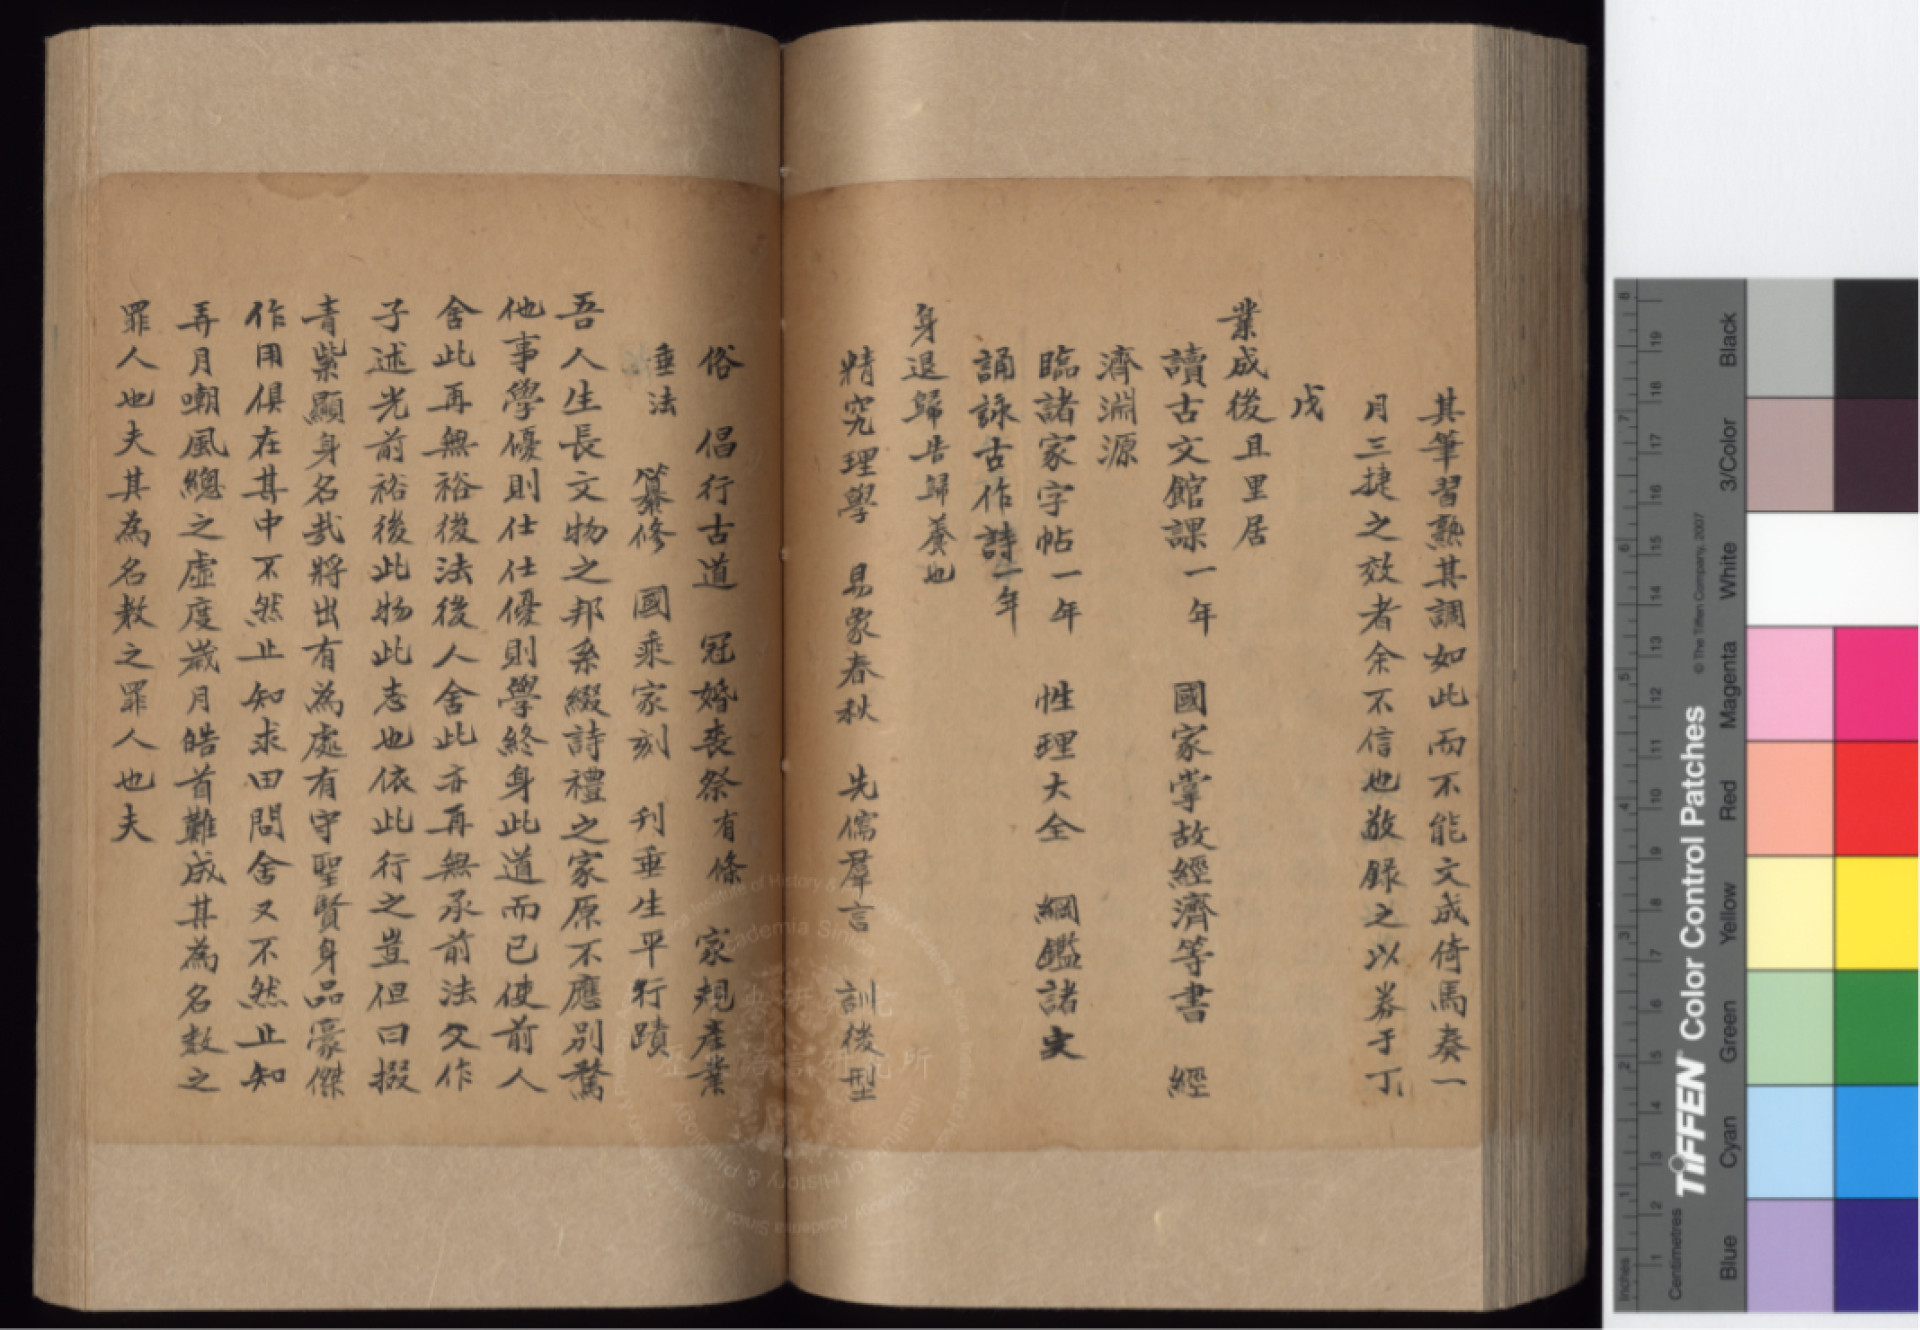 其筆習熟其調如此而不能文成倚馬奏一
月三捷之效者余不信也敬録之以券于丁
戊
業成後且里居
讀古文館課一年 國家掌故經濟等書 經
濟淵源
臨諸家字帖一年 性理大全 綱鑑諸史
誦詠古作詩一年
身退歸告歸養也
精究理學 易象春秋 先儒羣言 訓後型
俗 倡行古道 冠婚喪祭有條 家規產業
垂法 纂修 國乘家刻 刋垂生平行蹟
吾人生長文物之邦系綴詩禮之家原不應別騖
他事學優則仕仕優則學終身此道而已使前人
舍此再無裕後法後人舍此亦再無承前法父作
子述光前裕後此物此志也依此行之豈但曰掇
青紫顯身名哉將出有為處有守聖賢身品豪傑
作用俱在其中不然止知求田問舍又不然止知
弄月嘲風總之虛度歲月皓首難成其為名教之
罪人也夫其為名教之罪人也夫
TIFFEN Color Control Patches
© The Tiffen Company, 2007
Inches
Centimetres
Blue
Cyan
Green
Yellow
Red
Magenta
White
3/Color
Black